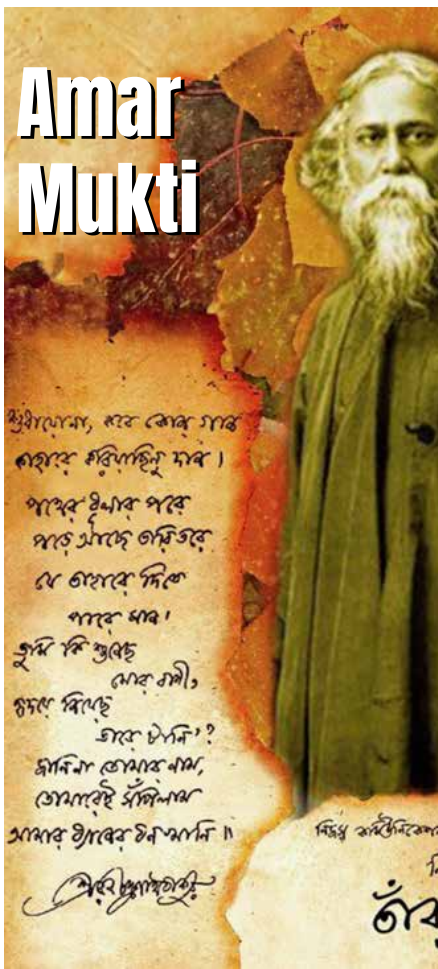 Amar
Mukti
শুধায়োনা, কবে কোন গান
কাহারে করিয়াছিনু দান।
পথের ধূলার পরে
পড়ে আছে তারি তরে
যে তাহারে দিতে
পারে মান।
তুমি কি শুনেছ
মোর বাণী,
হৃদয়ে নিয়েছ
তারে টানি'?
জানিনা তোমার নাম,
তোমারেই সঁপিলাম
আমার ধ্যানের ধন খানি॥
শ্রীরবীন্দ্রনাথ ঠাকুর